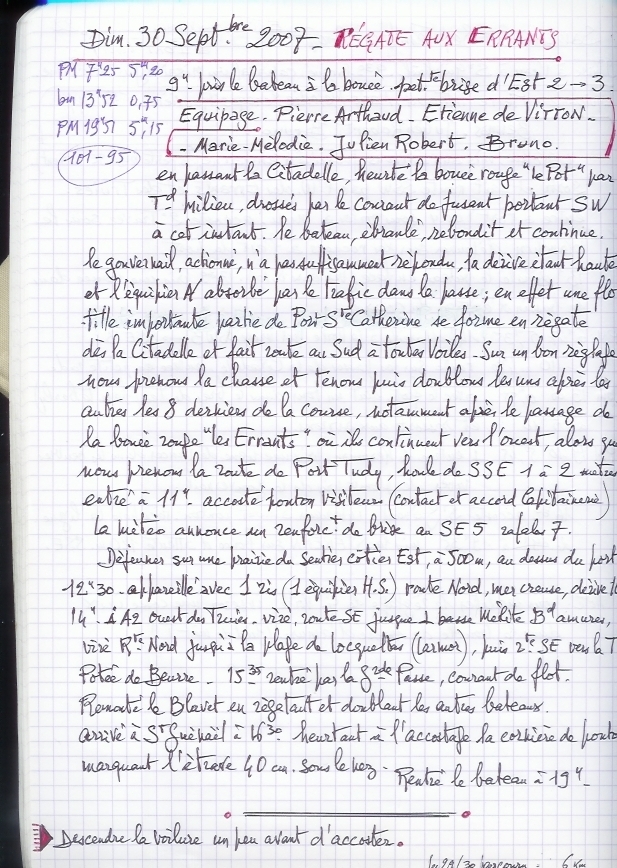 Dim. 30 Sept.bre 2007 _ RÉGATE AUX ERRANTS
PM 7h25 5m20
bm 13h52 0,75
PM 19h51 5m,15
101-95
9h pris le bateau à la bouée. petite brise d'Est 2 → 3.
Equipage. Pierre Arthaud - Etienne de VITTON -
- Marie-Mélodie. Julien Robert. Bruno.
en passant la Citadelle, heurté la bouée rouge "le Pot" par
Td milieu, drossés par le courant de jusant portant SW
à cet instant. le bateau, ébranlé, rebondit et continue.
le gouvernail, actionné, n'a pas suffisamment répondu, la dérive étant haute
et l'équipier AV absorbé par le trafic dans la passe ; en effet une flo
-tille importante partie de Port Ste Catherine se forme en régate
dès la Citadelle et fait route au Sud à toutes voiles - Sur un bon réglage
nous prenons la chasse et tenons puis doublons les uns après les
autres les 8 derniers de la course, notamment après le passage de
la bouée rouge "les Errants" où ils continuent vers l'ouest, alors que
nous prenons la route de Port Tudy, houle de SSE 1 à 2 mètres
entré à 11h - accosté ponton visiteurs (contact et accord Capitainerie)
La météo annonce un renforct de brise au SE 5 rafales 7.
Déjeuner sur une prairie du sentier côtier Est, à 500m, au dessus du port
12h30 - appareillé avec 1 ris (1 équipier H.S.) route Nord, mer creuse, dérive
14h. à A2 ouest des Truies - viré, route SE jusque basse Mélite Bd amures,
viré Rte Nord jusqu'à la plage de Locqueltas (Larmor), puis 2 SE vers la T
Potée de Beurre - 15 35 rentré par la gde Passe, courant de flot.
Remonté le Blavet en régatant et doublant les autres bateaux.
arrivé à St Guénaël à 16 30 heurtant à l'accostage la cornière de ponton
marquant l'étrave 40 cm. sous le nez. Rentré le bateau à 19h -
Descendre la voilure un peu avant d'accoster.
6 Km